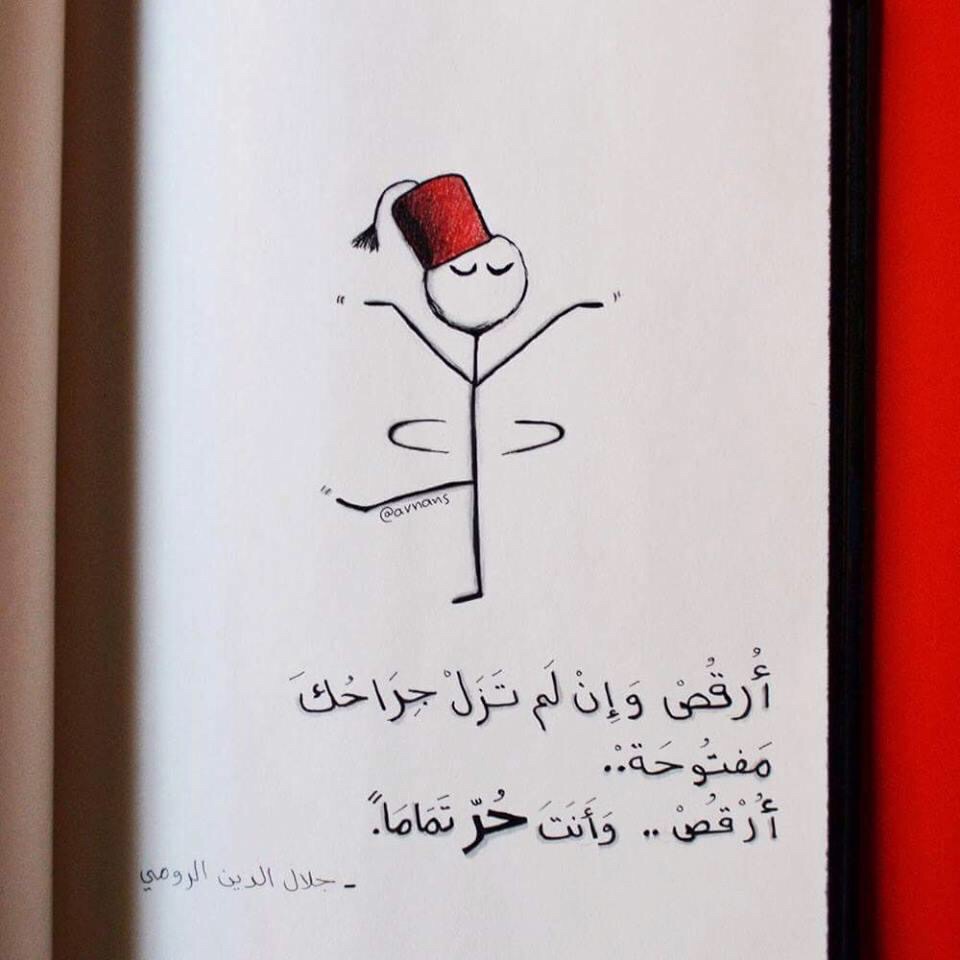 @arnans
أُرقُصْ وَإِنْ لَم تَزَلْ جِرَاحُكَ
مَفتُوحَةْ..
أُرْقُصْ .. وَأَنتَ حُرّ تَمَامَاً.
- جلال الدين الرومي